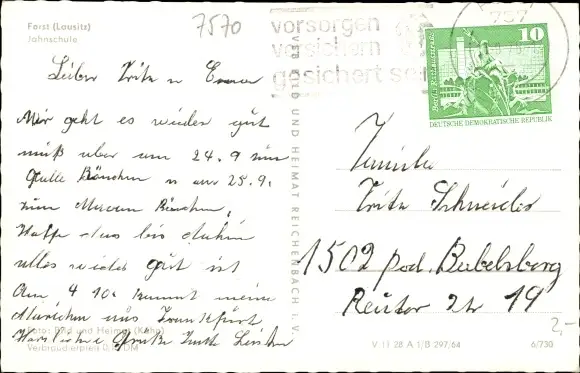 Forst (Lausitz)
Jahnschule
7570
vorsorgen
versichern
gesichert sein
757
10
DEUTSCHE DEMOKRATISCHE REPUBLIK
Lieber Fritz u
Mir geht es wieder gut
muß aber am 24. 9 zum
Galle Röntchen u am 25.9.
zum Magen Röntchen,
Hoffe das bis dahin
alles wieder gut ist
Am 4 10. kommt meine
aus Frankfurt,
Herzliche Grüße
Foto: Bild und Heimat (Kühn)
Verbraucherpreis 0, DM
VEB BILD UND HEIMAT REICHENBACH I. V.
Familie
Fritz Schneider
1502 Pod. Babelsberg
Reuter Str 19
2,-
V 11 28 A 1/B 297/64
6/730